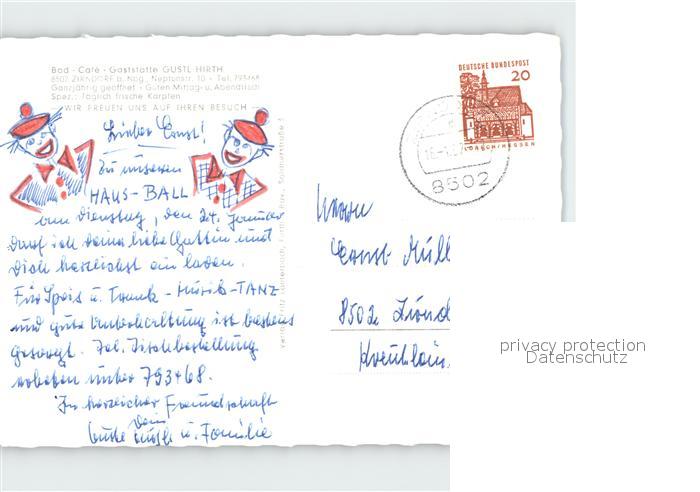 Bad - Café - Gaststätte GUSTL HIRTH
8502 ZIRNDORF b. Nbg., Neptunstr. 10 - Tel. 793468
Ganzjährig geöffnet - Guten Mittag- u. Abendtisch
Spez.: Täglich frische Karpfen
WIR FREUEN UNS AUF IHREN BESUCH
Lieber Ernst!
Zu unseren
HAUS-BALL
am Dienstag, den 24. Januar
darf ich deine liebe Gattin und
Dich herzlichst ein laden.
Für Speis u. Trank - Musik - TANZ
und gute Unterhaltung ist bestens
gesorgt. Tel. Tischbestellung
erbeten unter 793468.
In herzlicher Freundschaft
Dein
u. Familie
DEUTSCHE BUNDESPOST
20
LORSCH/HESSEN
8502
Herrn
Ernst Müll
8502 Zirnd
privacy protection
Datenschutz